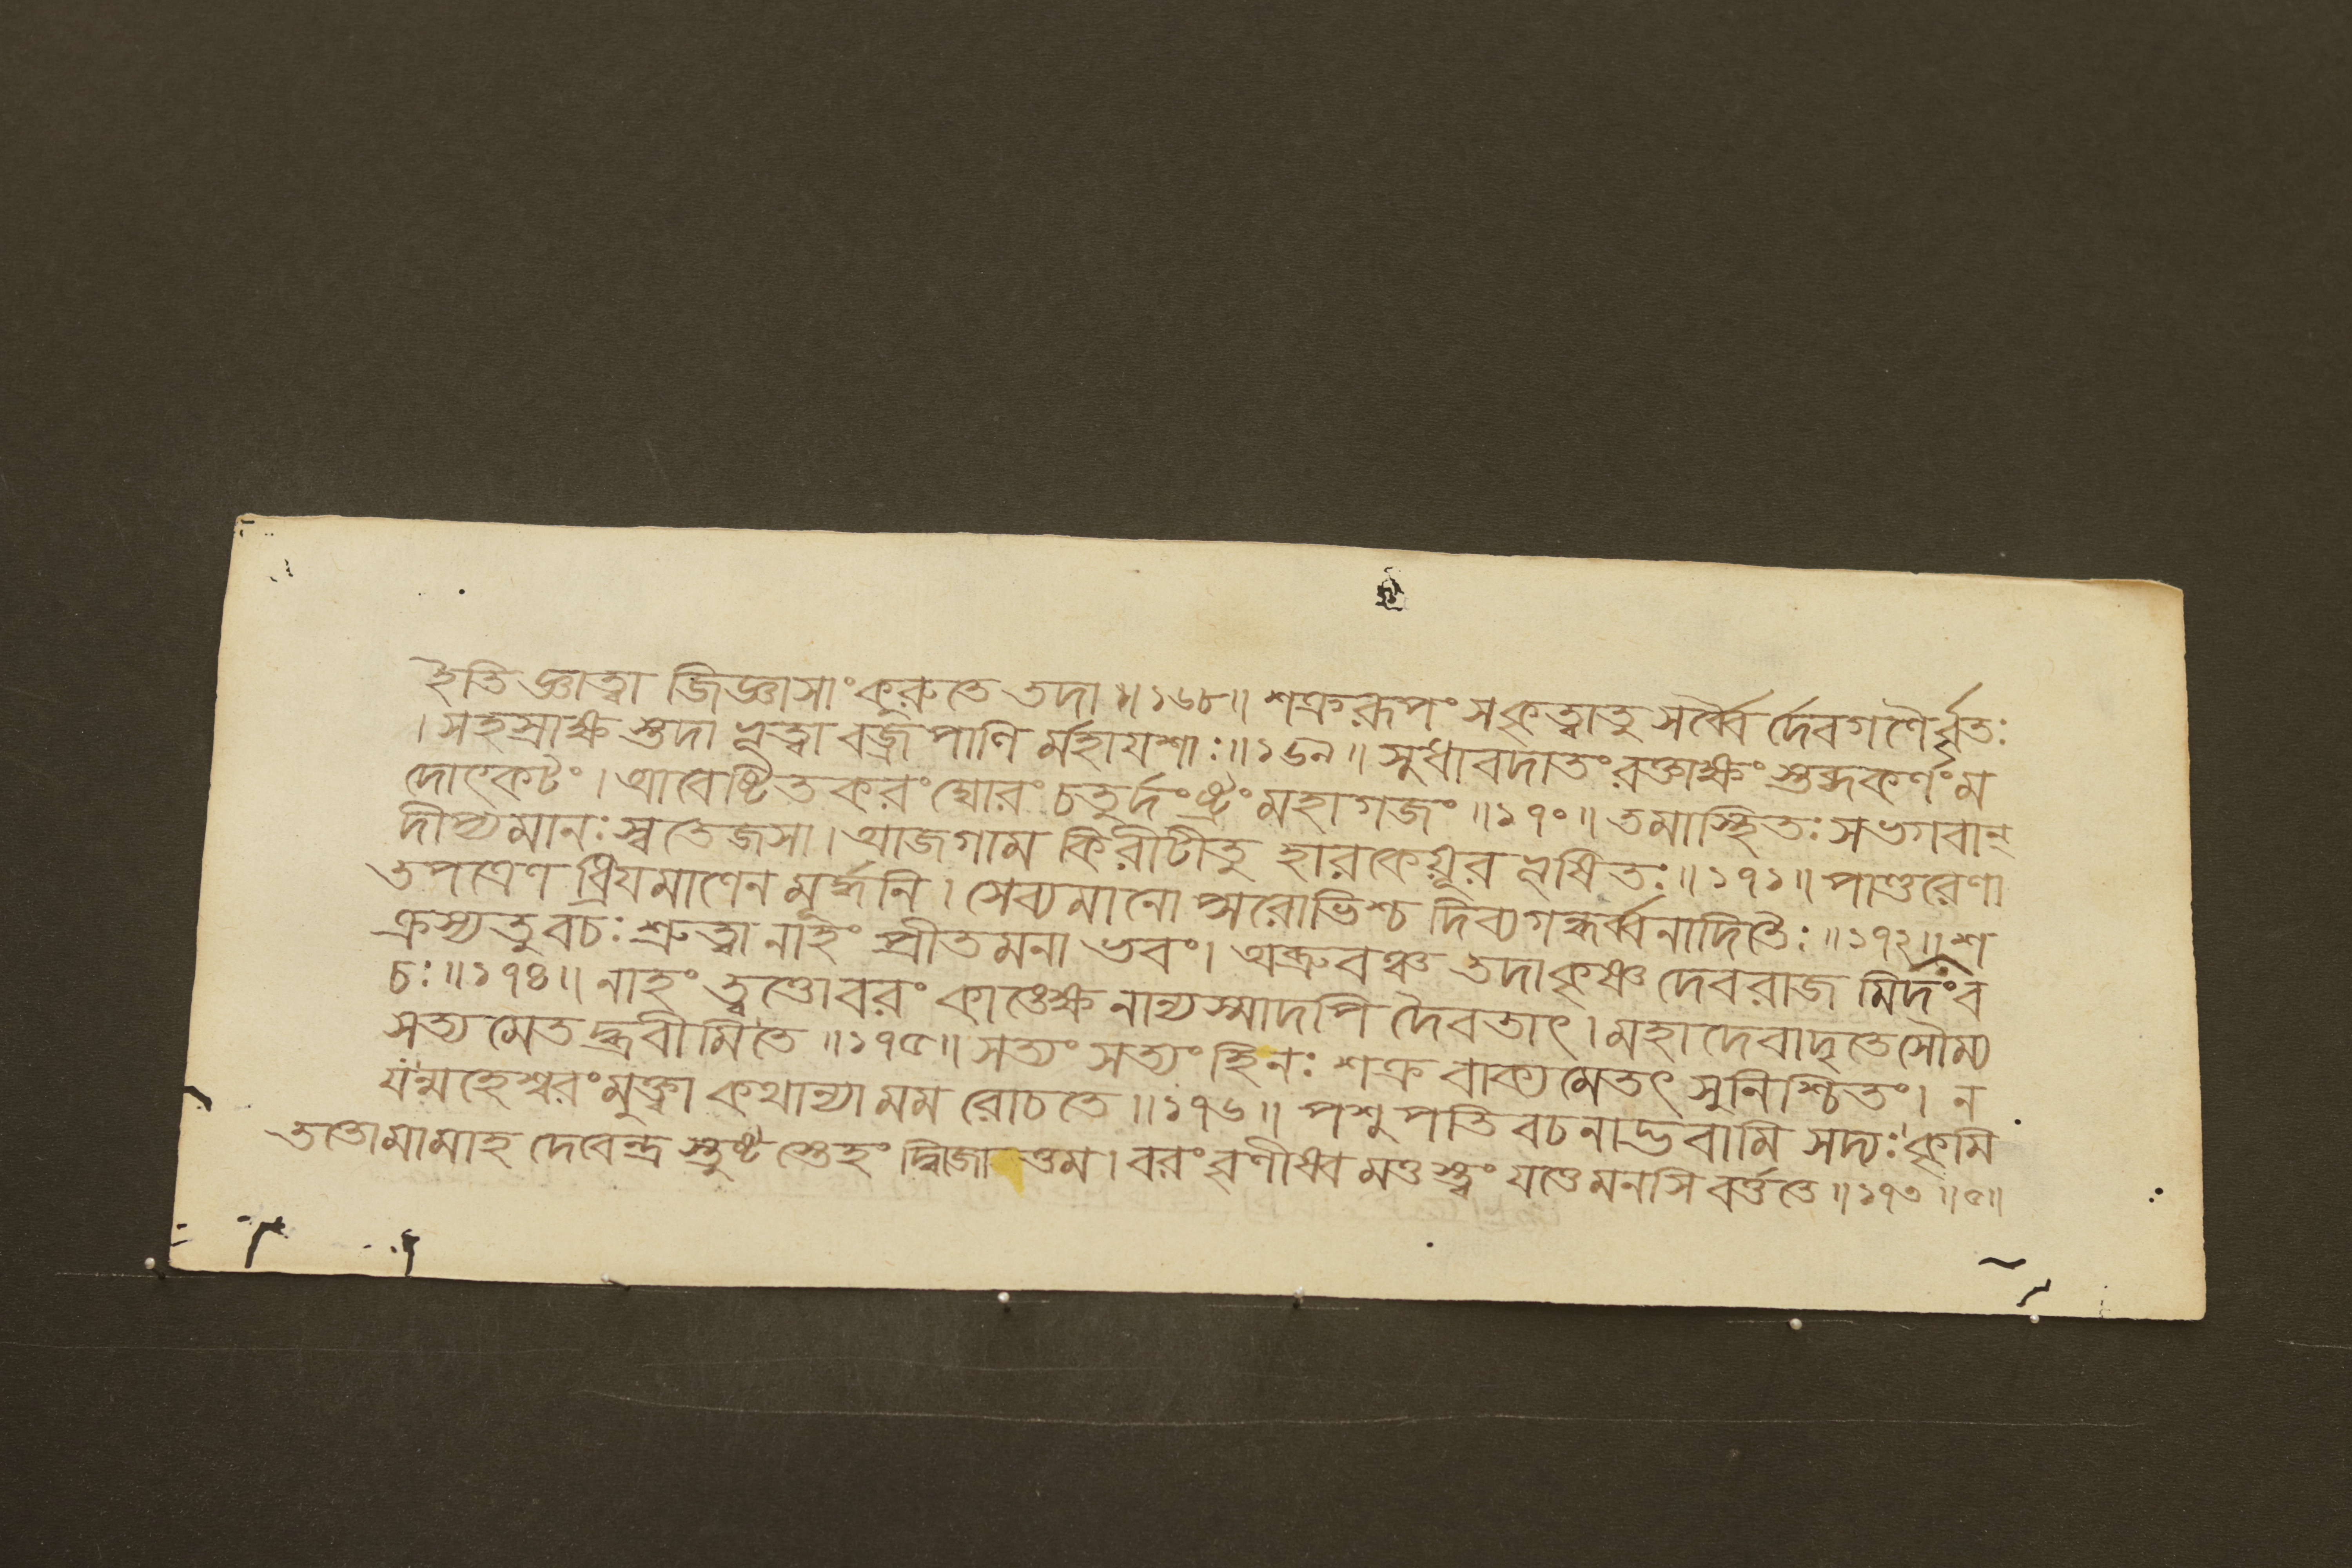 ইতি জ্ঞাত্বা জিজ্ঞাসাং কুরুতে তদা ॥১৬৮॥ শক্ররূপং সকৃত্বাতু সর্ব্বৈ র্দেবগণৈর্ব্বৃতঃ
। সহস্রাক্ষ স্তদা ভূত্বা বজ্রপাণি র্মহাযশাঃ ॥১৬৯॥ সুধাবদাতং রক্তাক্ষং স্তব্দকর্ণং ম
দোৎকটং । আবেষ্টিতকরং ঘোরং চতুর্দংষ্ট্রং মহাগজং ॥১৭০॥ তমাস্থিতঃ সভগবান্
দীপ্যমানঃ স্বতেজসা । আজগাম কিরীটীতু হারকেয়ূর ভূষিতঃ ॥১৭১॥ পাণ্ডুরেণা
তপত্রেণ ধ্রিযমাণেন মূর্দ্ধনি । সেব্যমানো প্সরোভিশ্চ দিব্যগন্ধর্ব্বনাদিতৈঃ ॥১৭২॥ শ
ক্রস্যতু বচঃ শ্রুত্বা নাহং প্রীতমনা ভবং । অব্রুবঞ্চ তদাকৃষ্ণ দেবরাজ মিদং ব
চঃ ॥১৭৪॥ নাহং ত্বত্তোবরং কাঙ্ক্ষে নান্যস্মাদপি দৈবতাৎ । মহাদেবাদৃতেসৌম্য
সত্য মেতদ্ব্রবীমিতে ॥১৭৫॥ সত্যং সত্যং হিনঃ শক্র বাক্যমেতৎ সুনিশ্চিতং । ন
যন্মহেশ্বরং মুক্ত্বা কথান্যা মম রোচতে ॥১৭৬॥ পশুপতি বচনাদ্ভবামি সদ্যঃ কৃমি
ততোমামাহ দেবেন্দ্র স্তুষ্ট স্তেহং দ্বিজোত্তম । বরং বৃণীধ্ব মত্তস্ত্বং যত্তেমনসি বর্ত্ততে ॥১৭৩॥৫॥